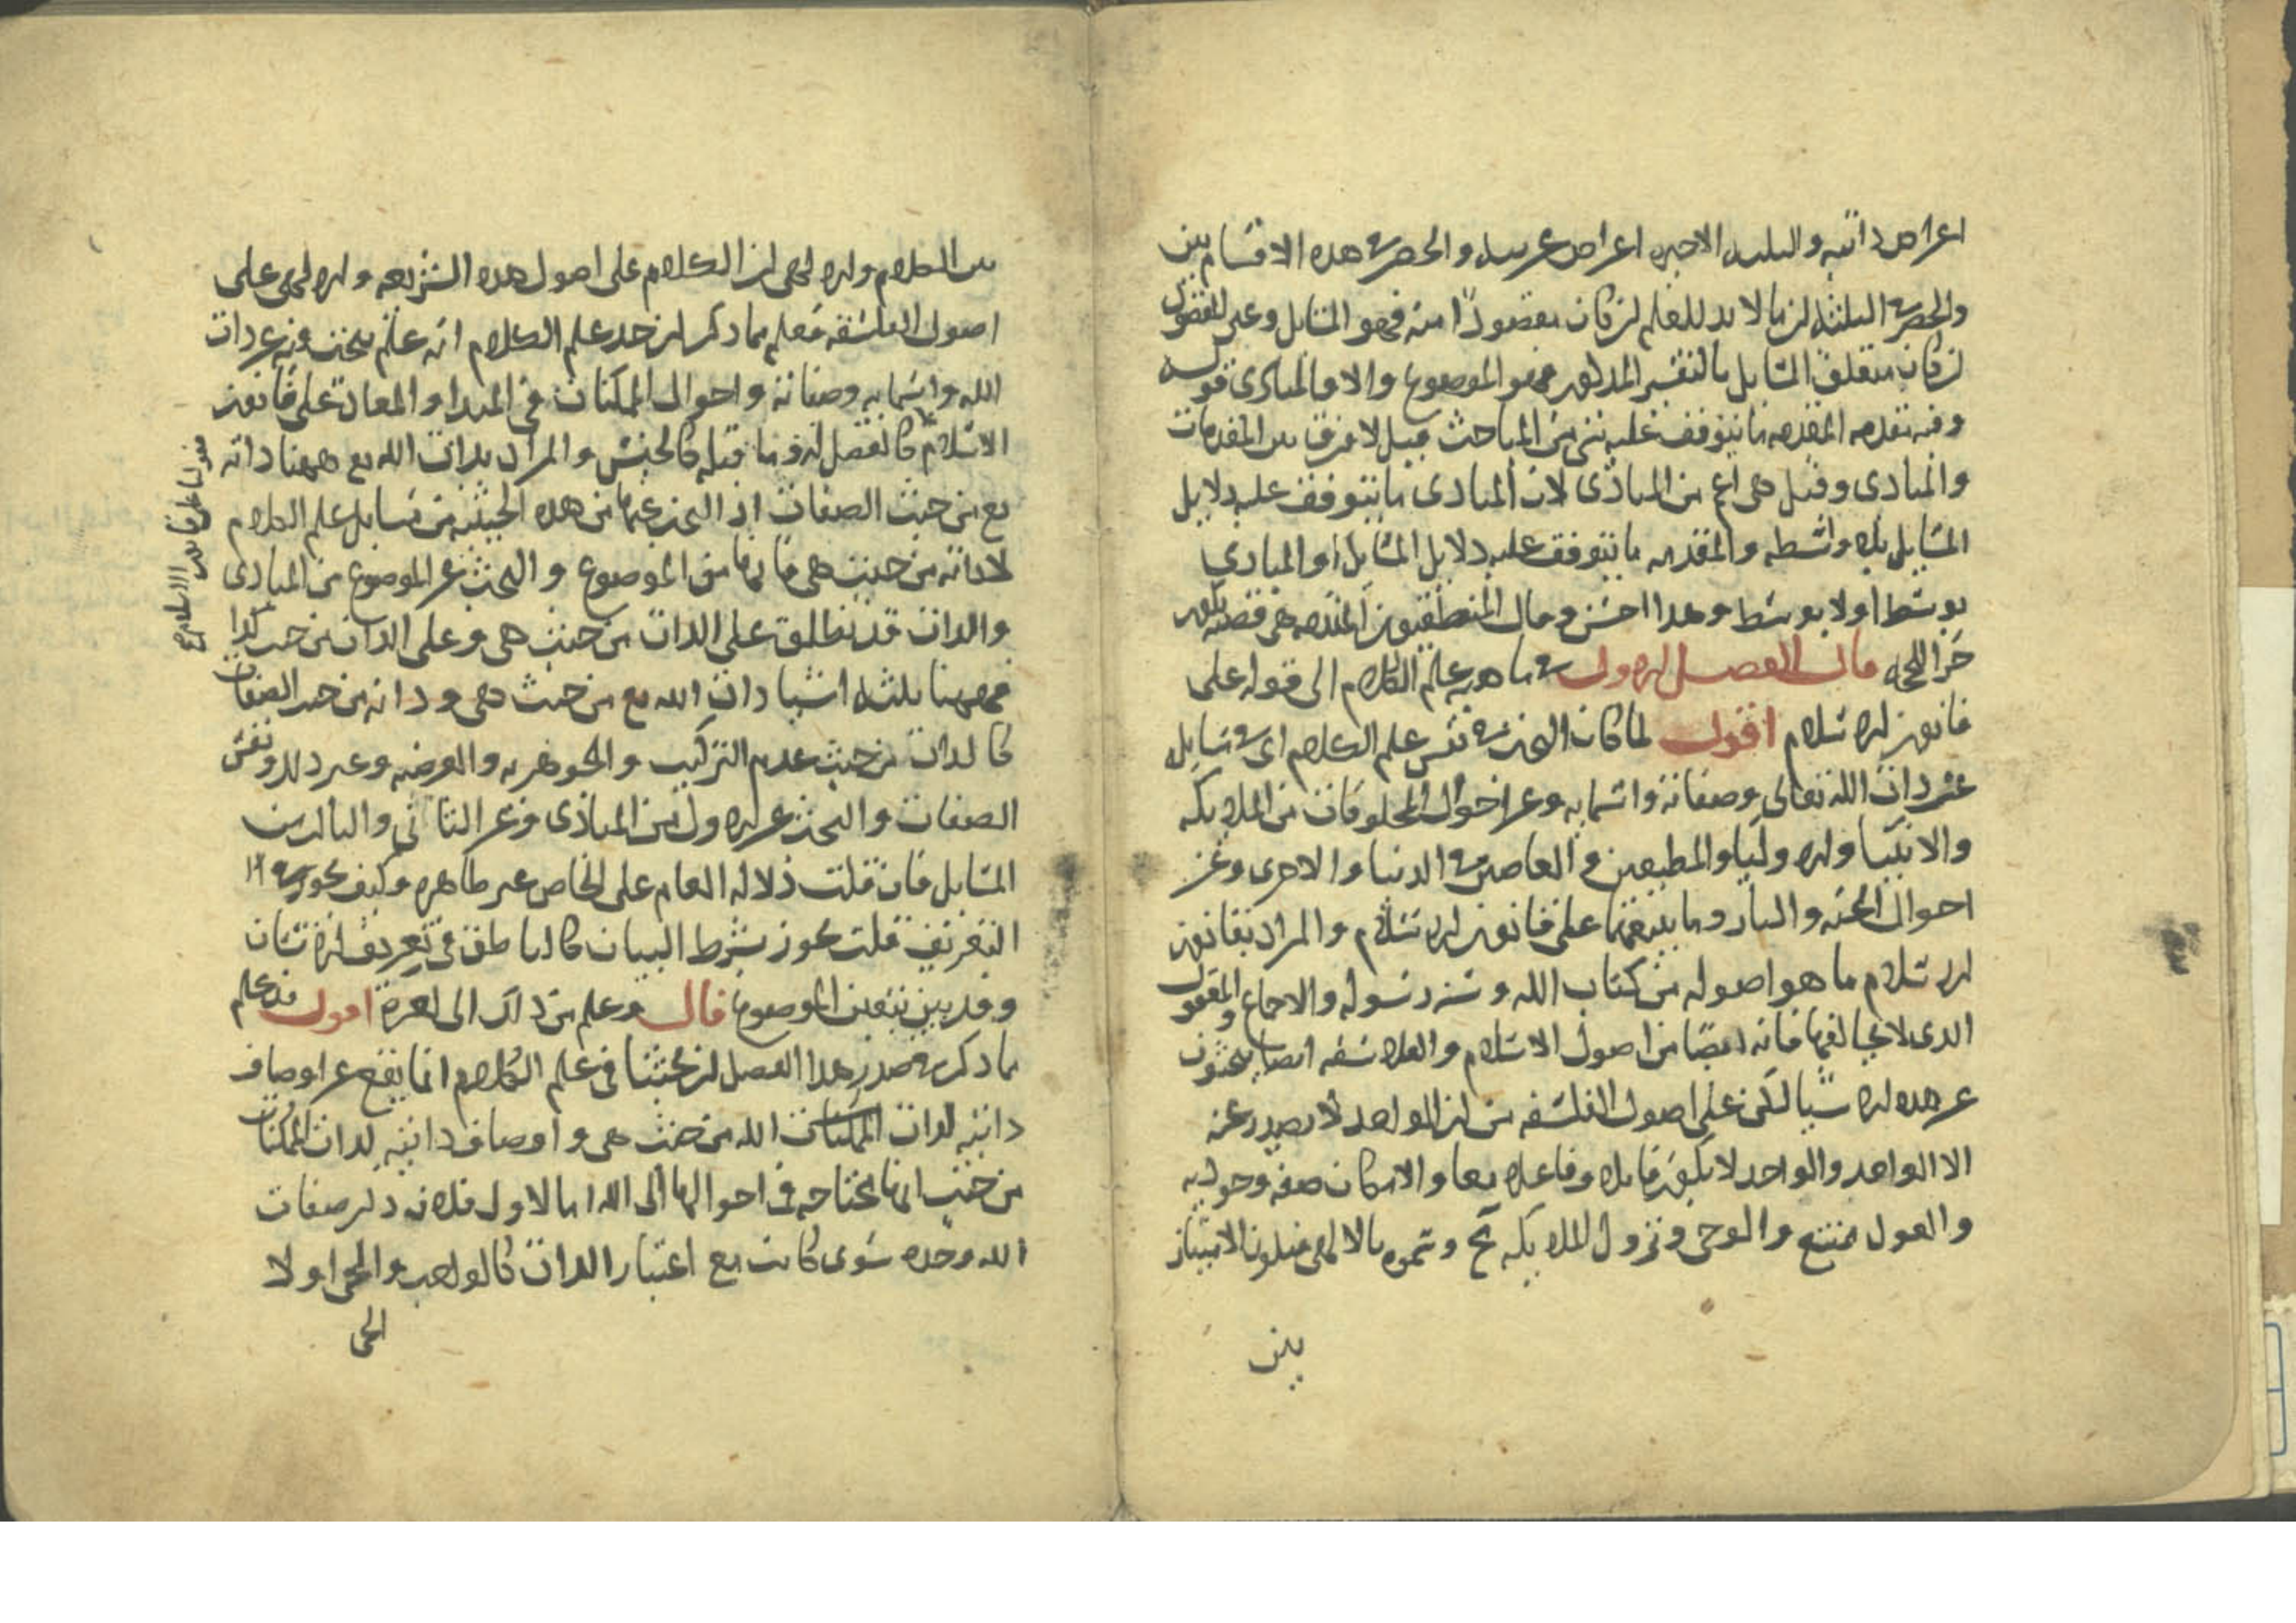 اعراض ذاتيه والثلثه الاخيره اعراض غريبه والحصر في هذه الاقسام بين
والحصر في الثلثه لان ما لا بد للعلم ان كان مقصودًا منه فهو المسايل وغير المقصود
ان كان متعلق المسايل بالتفسير المذكور فهو الموضوع والا فالمبادى قوله
وفيه مقدمه المقدمه ما يتوقف عليه شى من المباحث قيل لا فرق بين المقدمات
والمبادى وقيل هى اعم من المبادى لان المبادى ما يتوقف عليه دلايل
المسايل بلا واسطه والمقدمه ما يتوقف عليه دلايل المسايل او المبادى
بوسط او لا بوسط وهذا احسن وقال المنطقيون المقدمه هى قضيه تكون
جزا لحجه قال الفصل الاول في ماهيه علم الكلام الى قوله على
قانون الاسلام اقول لما كان البحث في نفس علم الكلام اى في مسايله
عن ذات الله تعالى وصفاته واسمايه وعن احوال المخلوقات من الملايكه
والانبيا والاوليا والمطيعين والعاصين في الدنيا والاخرى وعن
احوال الجنه والنار وما ينبغى على قانون الاسلام والمراد بقانون
الاسلام ما هو اصوله من كتاب الله وسنه رسوله والاجماع والمعقول
الذى لا يخالفها فانه ايضا من اصول الاسلام والفلاسفه ايضا يبحثون
عن هذه الاشيا لكن على اصول الفلسفه من ان الواحد لا يصدر عنه
الا الواحد والواحد لا يكون قابلا وفاعلا معا والامكان صفه وجوديه
والعول ممتنع والوحى ونزول الملايكه مح وسموه بالالهى فيلزم الامتياز
بين
بين الكلام والالهى ان الكلام على اصول هذه الشريعه والالهى على
اصول الفلسفه فعلم مما ذكر ان حد علم الكلام انه علم يبحث فيه عن ذات
الله واسمايه وصفاته واحوال الممكنات فى المبدا والمعاد على قانون
الاسلام كالفصل له وما قبله كالجنس والمراد بذات الله تع ههنا ذاته
تع من حيث الصفات اذ البحث عنها من هذه الحيثيه من مسايل علم الكلام
لا ذاته من حيث هى فانها من الموضوع والبحث عن الموضوع من المبادى
والذات قد تطلق على الذات من حيث هى وعلى الذات من حيث كذا
فههنا ثلثه اشيا ذات الله تع من حيث هى وذاته من حيث الصفات
كالذات من حيث عدم التركيب والجوهريه والعرضيه وغير ذلك ونفس
الصفات والبحث عن الاول من المبادى وعن الثانى والثالث من
المسايل فان قلت دلاله العام على الخاص غير ظاهره وكيف يجوز في
التعريف قلت يجوز بشرط البيان كالناطق فى تعريف الانسان
وقد بين بتعين الموضوع قال وعلم من ذلك الى اخره اقول قد علم
ما ذكر في صدر هذا الفصل ان بحثنا فى علم الكلام انما يقع عن اوصاف
ذاتيه لذات الله من حيث هى واوصاف ذاتيه لذات الممكنات
من حيث انها محتاجه فى احوالها الى الله اما الاول فلانه ذكر صفات
الله وحده سوى كانت مع اعتبار الذات كالواجب والحى او لا
الحى